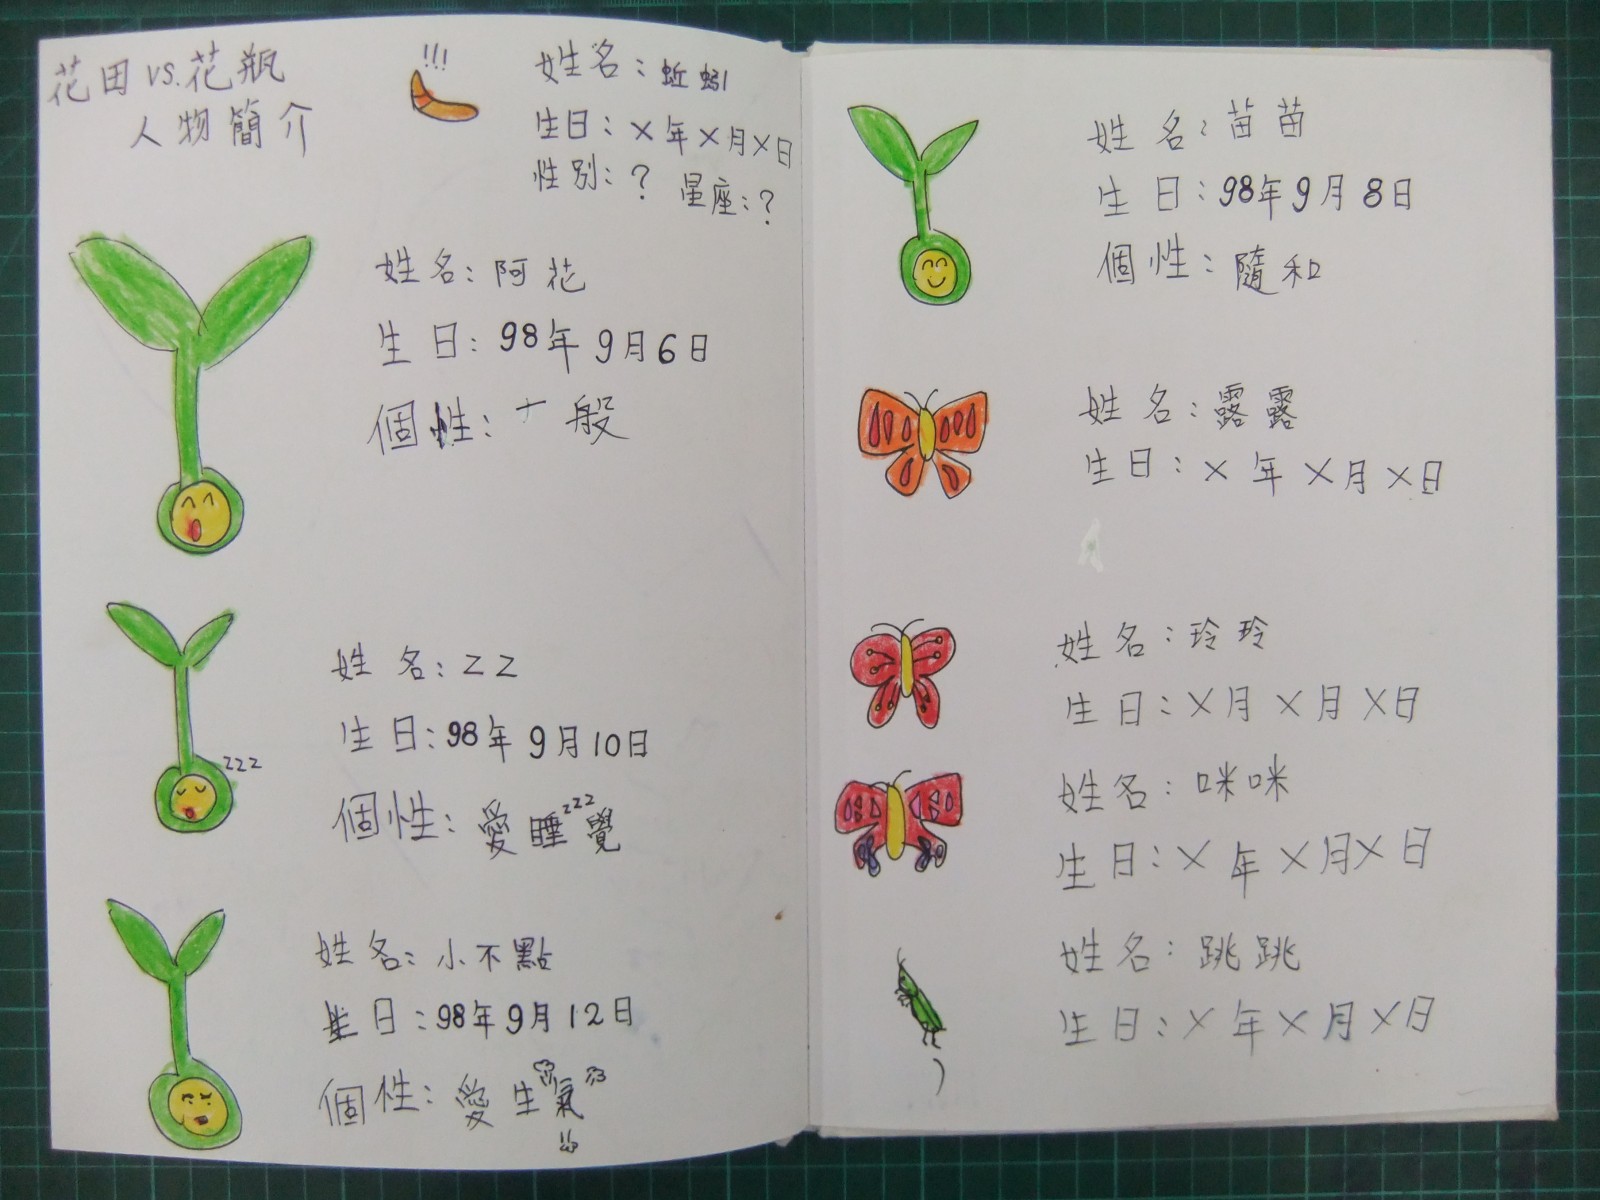 花田vs.花瓶
人物簡介
!!!
姓名：蚯蚓
生日：X年X月X日
性別：？ 星座：？
姓名：阿花
生日：98年9月6日
個性：一般
姓名：ZZ
生日：98年9月10日
zzz
個性：愛睡覺
zzz
姓名：小不點
生日：98年9月12日
個性：愛生氣
姓名：苗苗
生日：98年9月8日
個性：隨和
姓名：露露
生日：X年X月X日
姓名：玲玲
生日：X月X月X日
姓名：咪咪
生日：X年X月X日
姓名：跳跳
生日：X年X月X日